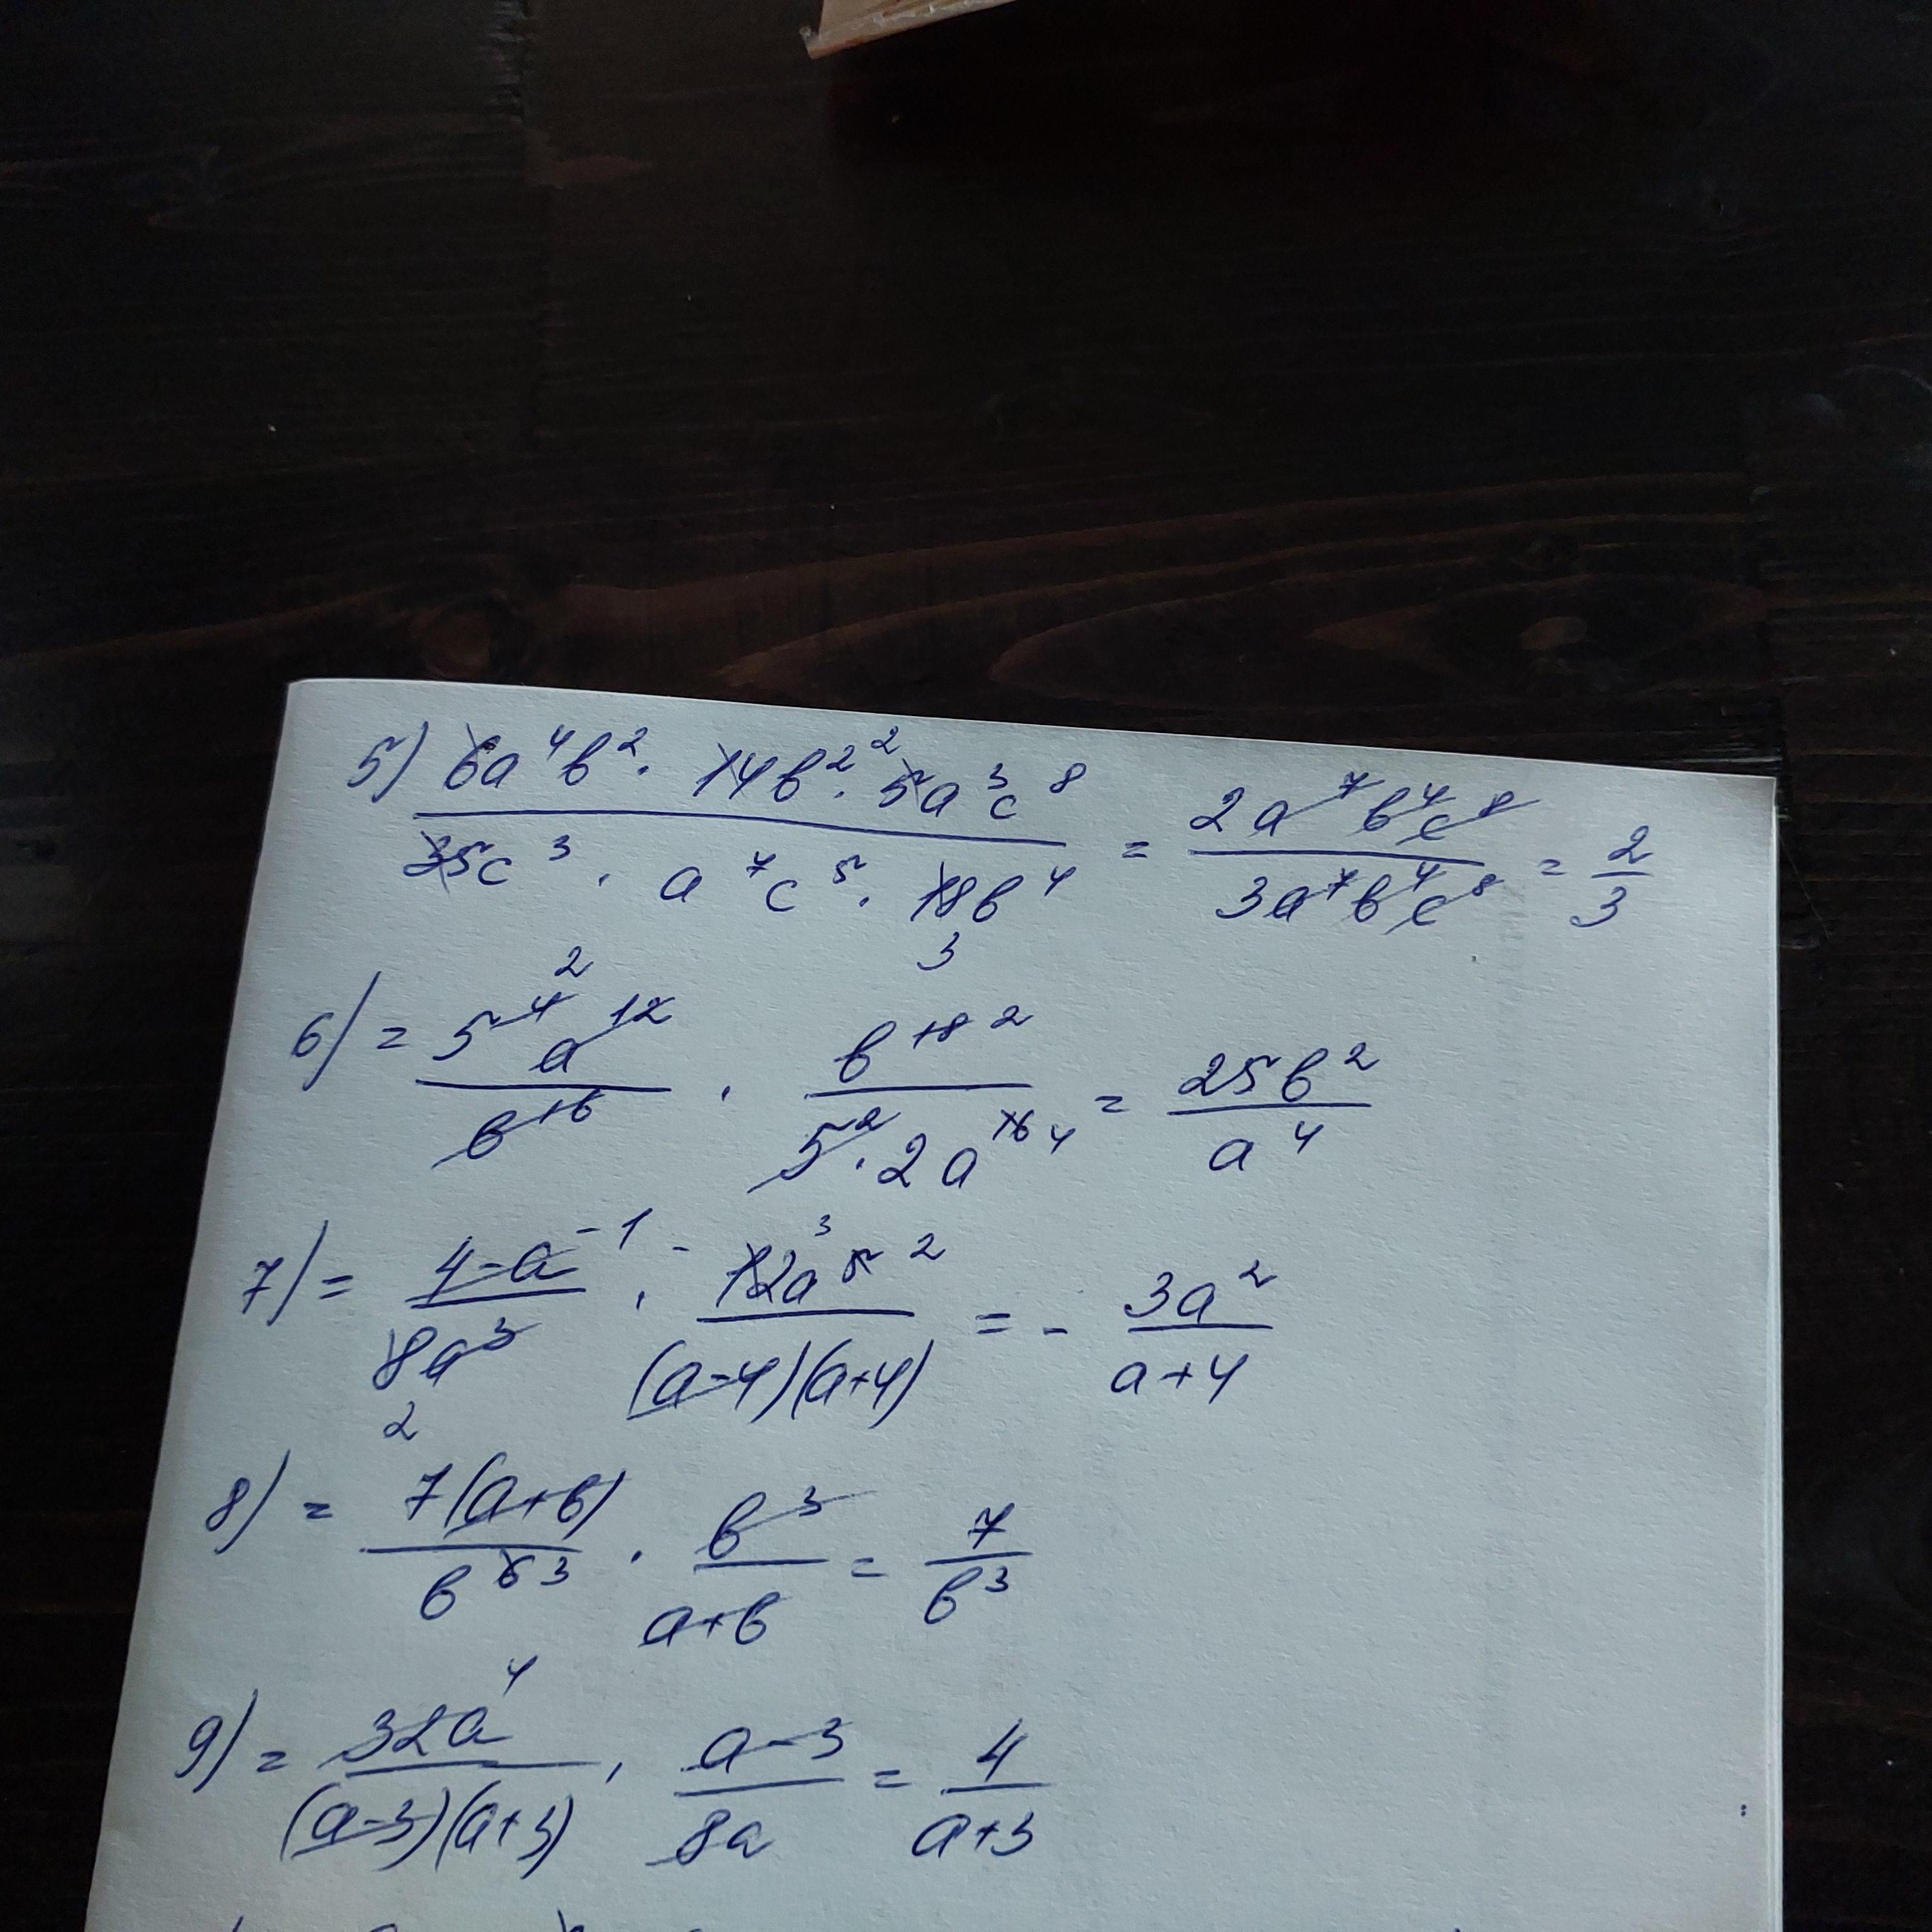 5) 6a⁴в² · 14в² ² · 5a³c⁸ / 35c³ · a⁷c⁵ · 18в⁴ 3 = 2a⁷в⁴c⁸ / 3a⁷в⁴c⁸ = 2/3
6) = 5⁴ ² a¹² / в¹⁶ · в¹⁸ ² / 5² · 2a¹⁶ ⁴ = 25в² / a⁴
7) = 4-a ⁻¹ / 8a³ 2 · - 12 ³ a⁵ ² / (a-4)(a+4) = - 3a² / a+4
8) = 7(a+в) / в⁶ ³ · в³ / a+в = 7 / в³
9) = 32a ⁴ / (a-3)(a+3) · a-3 / 8a = 4 / a+3